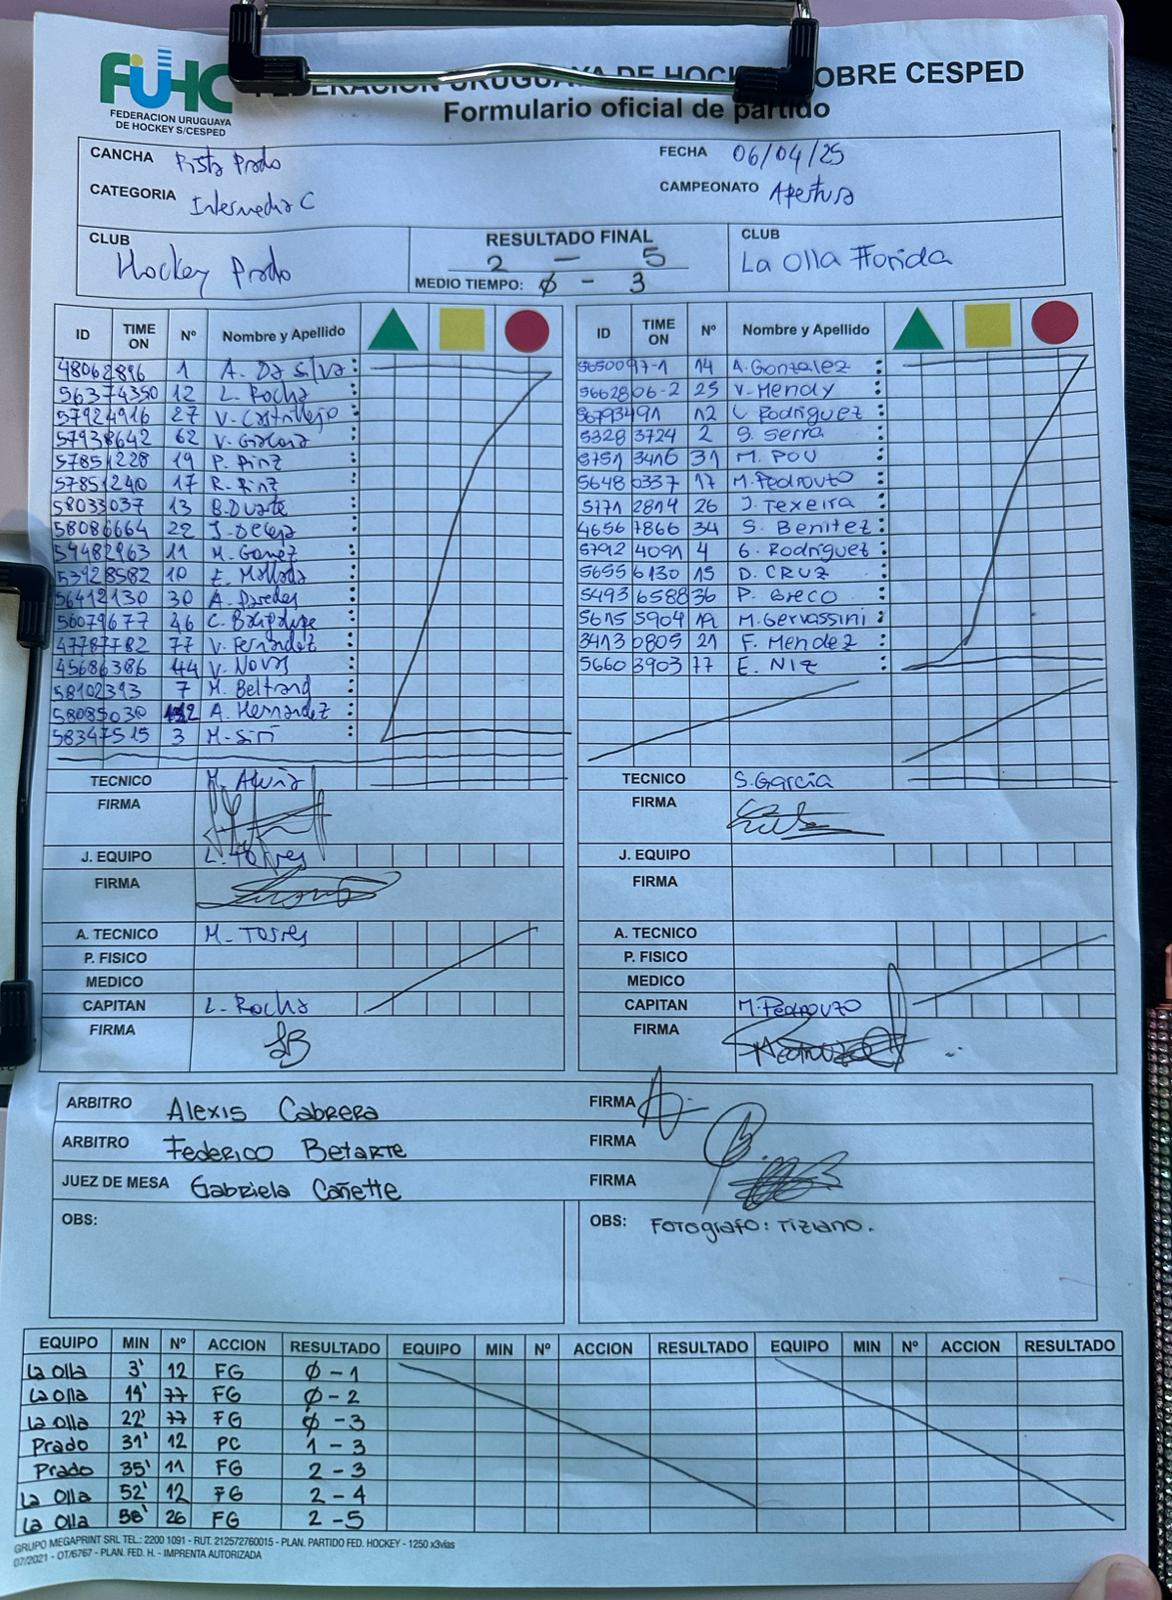 FUHC
FEDERACION URUGUAYA
DE HOCKEY S/CESPED
FEDERACION URUGUAYA DE HOCKEY SOBRE CESPED
Formulario oficial de partido
CANCHA Pista Prado FECHA 06/04/25
CATEGORIA Intermedia C CAMPEONATO Apertura
CLUB Hockey Prado RESULTADO FINAL 2 - 5 CLUB La Olla Florida
MEDIO TIEMPO: 0 - 3
ID TIME ON Nº Nombre y Apellido ID TIME ON Nº Nombre y Apellido
48062896 1 A. Da silva 5650097-1 14 A. Gonzalez
56374350 12 L. Rocha 5662806-2 25 V. Mendy
57924916 27 V. Castillejo 56793491 12 L. Rodriguez
57938642 62 V. 5328 3724 2 S. Serra
57851228 19 P. Pinz 5751 3416 31 M. POU
57851240 17 R. Pinz 5648 0337 17 M. Pedrouzo
58033037 13 B. Duarte 5171 2814 26 J. Texeira
58086664 22 J. 4656 7866 34 S. Benitez
54482963 11 M. Gomez 5792 4091 4 G. Rodriguez
53428582 10 E. 5655 6130 15 D. CRUZ
56412130 30 A. Paredes 5493 6588 36 P. Greco
56079677 46 C. 5615 5904 19 M. Gervassini
47787782 77 V. Fernandez 3413 0805 21 F. Mendez
45686386 44 V. Novas 5660 3903 77 E. NIZ
58102393 7 M. Beltrand
58085030 A. Hernandez
58347515 3 M. Siri
TECNICO M. TECNICO S. Garcia
FIRMA FIRMA
J. EQUIPO L. Torres J. EQUIPO
FIRMA FIRMA
A. TECNICO M. Torres A. TECNICO
P. FISICO P. FISICO
MEDICO MEDICO
CAPITAN L. Rocha CAPITAN M. Pedrouzo
FIRMA FIRMA
ARBITRO Alexis Cabrera FIRMA
ARBITRO Federico Betarte FIRMA
JUEZ DE MESA Gabriela Cañette FIRMA
OBS: OBS: Fotografo: Tiziano.
EQUIPO MIN Nº ACCION RESULTADO EQUIPO MIN Nº ACCION RESULTADO EQUIPO MIN Nº ACCION RESULTADO
La Olla 3' 12 FG 0 - 1
La Olla 19' 77 FG 0 - 2
La Olla 22' 77 FG 0 - 3
Prado 31' 12 PC 1 - 3
Prado 35' 11 FG 2 - 3
La Olla 52' 12 FG 2 - 4
La Olla 58' 26 FG 2 - 5
GRUPO MEGAPRINT SRL TEL.: 2200 1091 - RUT. 212572760015 - PLAN. PARTIDO FED. HOCKEY - 1250 x3vias
07/2021 - OT/6767 - PLAN. FED. H. - IMPRENTA AUTORIZADA